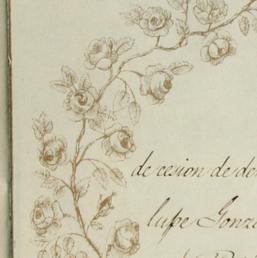 de cesion de de
lupe Gonza